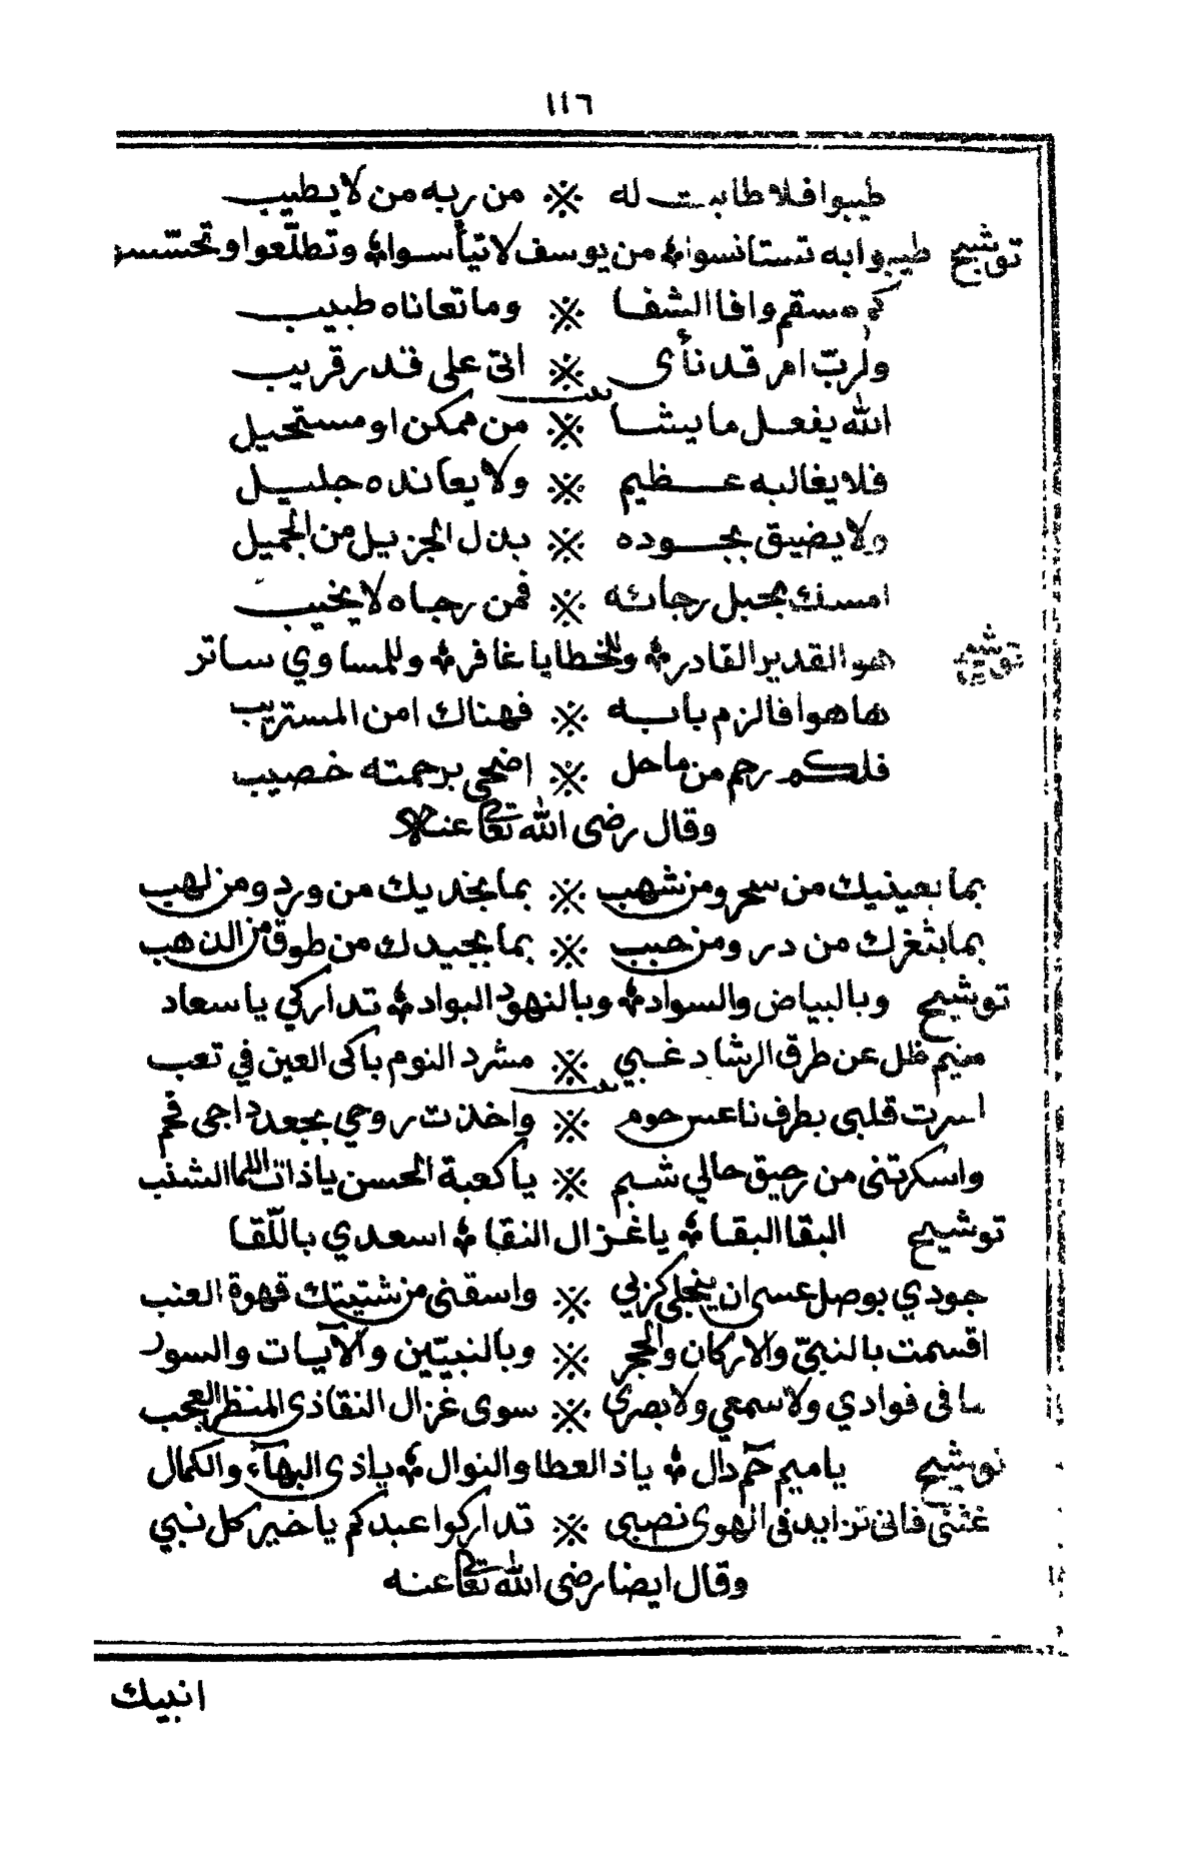 ١١٦
طيبوا فلا طابت له ※ من ربه من لا يطيب
توشيح طيبوا به تستانسوا ؞ من يوسف لا تيأسوا ؞ وتطلّعوا وتحسّسوا
كم سقم وافا الشفا ※ وما تعاناه طبيب
ولربّ امر قد نأى ※ اتى على قدر قريب
الله يفعل ما يشا ※ من ممكن او مستحيل
فلا يغالبه عظيم ※ ولا يعانده جليل
ولا يضيق بجوده ※ بذل الجزيل من الجميل
امسك بحبل رجائه ※ فمن رجاه لا يخيب
توشيح هو القدير القادر ؞ وللخطايا غافر ؞ وللمساوي ساتر
ها هوا فالزم بابه ※ فهناك امن المستريب
فلكم رحم من ماحل ※ اضحى برحمته خصيب
وقال رضى الله تعالى عنه
بما بعينيك من سحر ومن شهب ※ بما بخديك من ورد ومن لهب
بما بثغرك من در ومن حبب ※ بما بجيدك من طوق من الذهب
توشيح وبالبياض والسواد ؞ وبالنهود البواد ؞ تداركي يا سعاد
متيم ظل عن طرق الرشاد غبي ※ مشرد النوم باكى العين في تعب
اسرت قلبى بطرف ناعس حوم ※ واخذت روحي بجعد داجى فحم
واسكرتنى من رحيق حالي شبم ※ يا كعبة الحسن يا ذات اللما الشنب
توشيح البقا البقا ؞ يا غزال النقا ؞ اسعدي باللّقا
جودي بوصل عسى ان ينجلى كربي ※ واسقنى من شتيتك قهوة العنب
اقسمت بالنبيّ والاركان والحجر ※ وبالنبيّين والآيات والسور
ما فى فوادي ولا سمعي ولا بصري ※ سوى غزال النقا ذى المنظر العجب
توشيح يا ميم حم دال ؞ يا ذا العطا والنوال ؞ يا ذى البهآء والكمال
غثنى فانى تزايد فى الهوى نصبى ※ تداركوا عبدكم يا خير كل نبي
وقال ايضا رضى الله تعالى عنه
انبيك